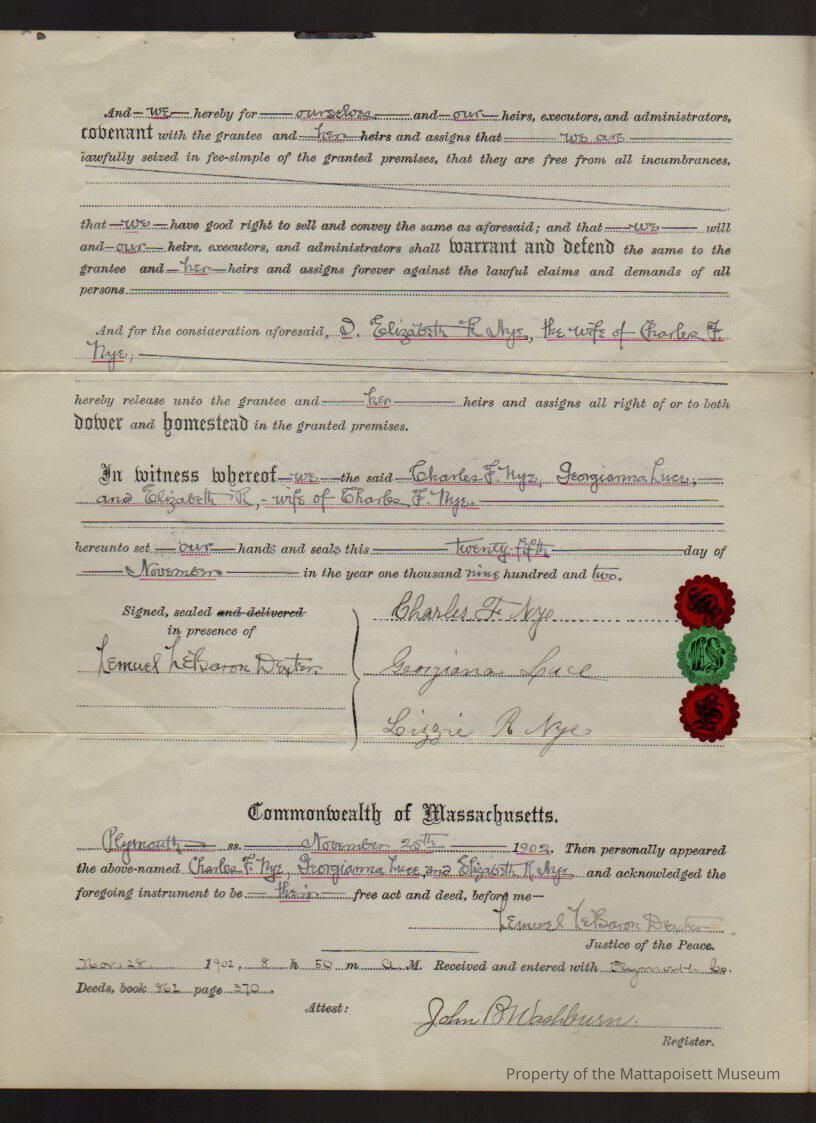 And we hereby for ourselves and our heirs, executors, and administrators,
covenant with the grantee and her heirs and assigns that we are
lawfully seized in fee-simple of the granted premises, that they are free from all incumbrances,
that we have good right to sell and convey the same as aforesaid; and that we will
and our heirs, executors, and administrators shall warrant and defend the same to the
grantee and her heirs and assigns forever against the lawful claims and demands of all
persons
And for the consideration aforesaid, I. Elizabeth R. Nye, the wife of Charles F.
Nye,
hereby release unto the grantee and her heirs and assigns all right of or to both
dower and homestead in the granted premises.
In witness whereof we the said Charles F. Nye, Georgianna Luce,
and Elizabeth R, wife of Charles F. Nye.
hereunto set our hands and seals this twenty-fifth day of
November in the year one thousand nine hundred and two.
Signed, sealed and delivered
in presence of
Lemuel LeBaron Dexter
Charles F Nye
Georgiana Luce
Lizzie R Nye
LS
Commonwealth of Massachusetts.
Plymouth ss. November 25th 1902. Then personally appeared
the above-named Charles F. Nye, Georgianna Luce, and Elizabeth R. Nye and acknowledged the
foregoing instrument to be their free act and deed, before me—
Lemuel LeBaron Dexter
Justice of the Peace.
Nov. 28. 1902, 8 h 50 m A. M. Received and entered with Plymouth Co.
Deeds, book 862 page 370.
Attest:
John B Washburn.
Register.
Property of the Mattapoisett Museum